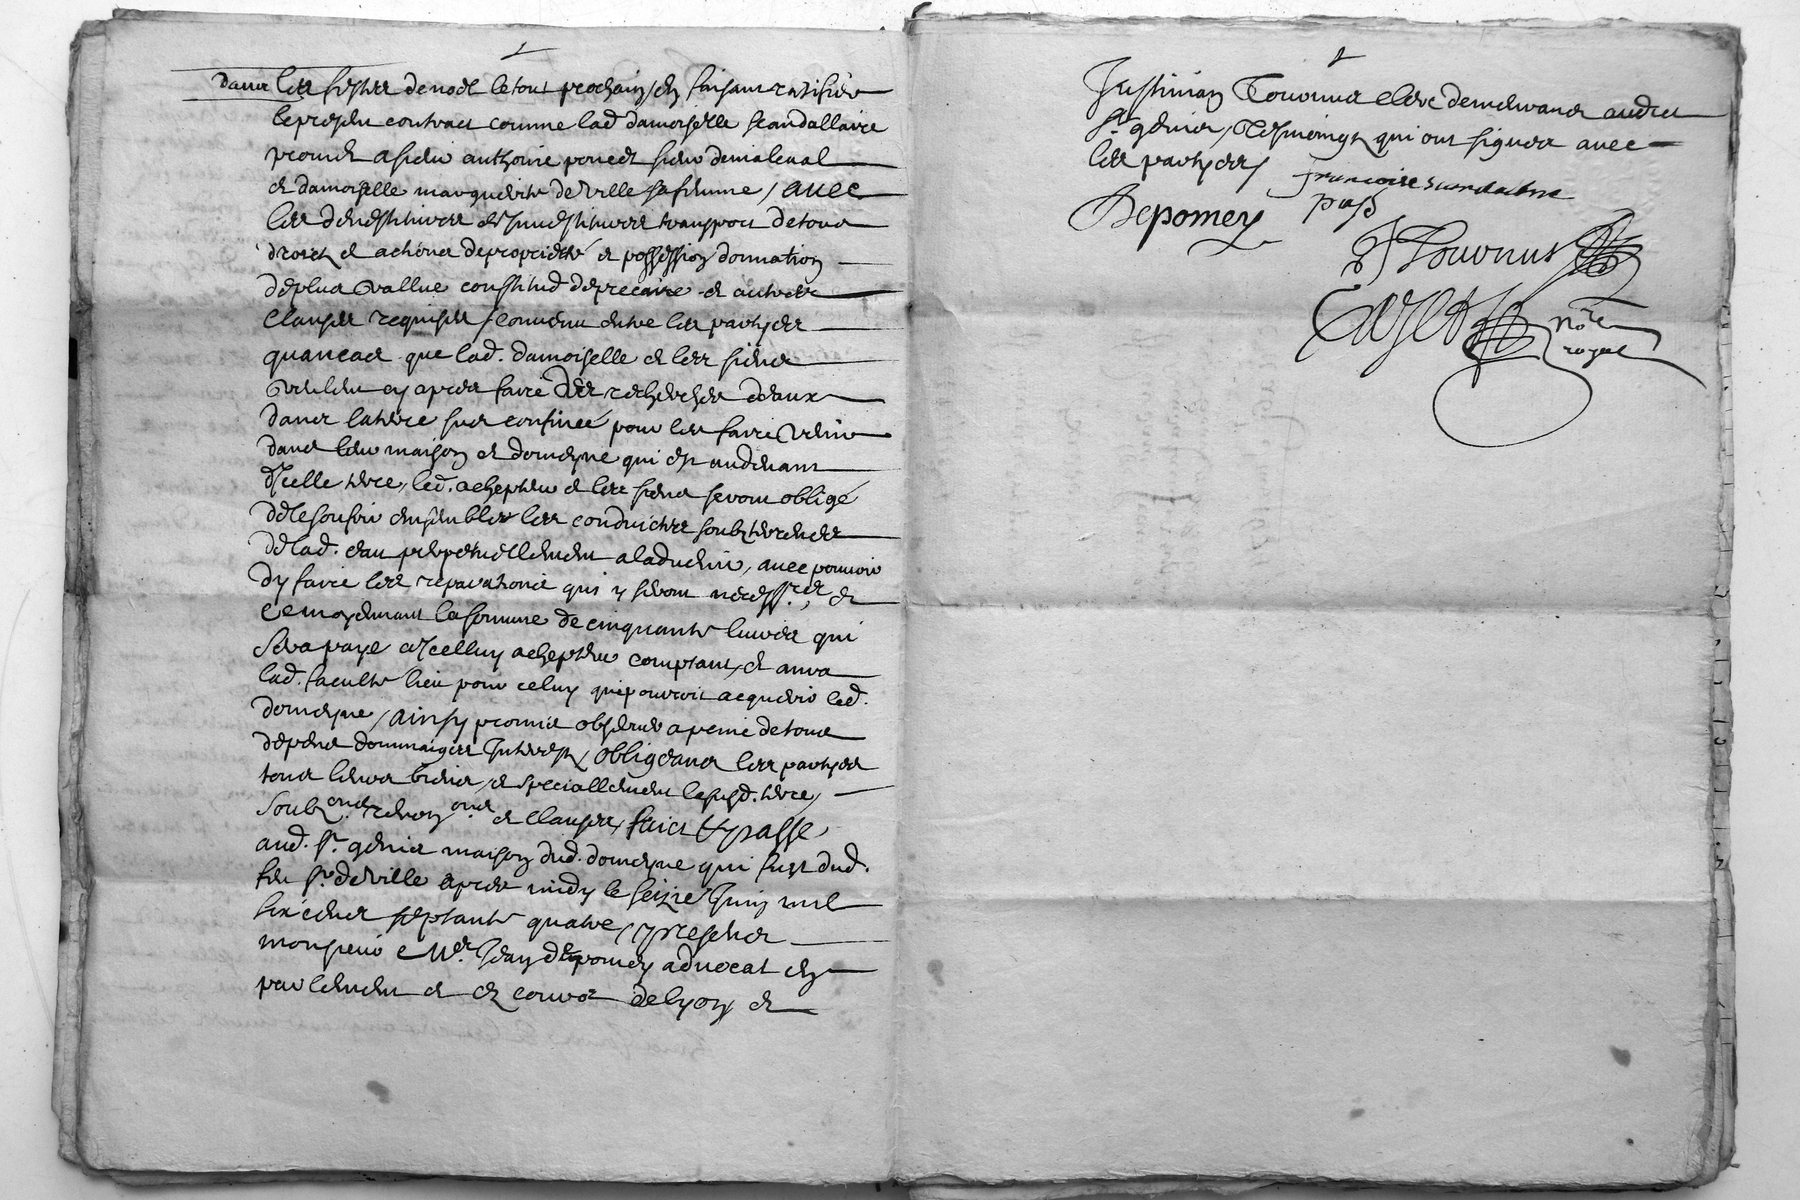 dans les festes de noel le tout prochain, en faisant ratifier
le present contract comme lad. damoiselle scandallaire
promet a sieur anthoine poncet sieur de malleval
et damoiselle marguerite de ville sa femme, avec
les devestitures et investitures transport de tous
droits et actions de proprietté et possession donnation
de plus vallue constitud de precaire et autres
clauses requises, convenu entre les partyes
quan cas que lad. damoiselle et les siens
veulent cy apres faire des recherches deaux
dans la terre sus confinée pour les faire venir
dans leur maison et domeyne qui est au devant
dicelle terre, led. achepteur et les siens seront obligé
de le soufrir ensemble les conduictes soubterrenes
de lad. eau perpetuellement aladvenir, avec pouvoir
dy faire les reparations qui y seront necess.res, et
ce moyennant la somme de cinquante livres qui
sera paye a icelluy achepteur comptant, et aura
lad. faculté lieu pour celuy qui pouvroit acquerir led.
domeyne, ainsy promis observer a peine de tous
depens dommaiges interestz, obligeans les partyes
tous leurs biens, et speciallement la susd. terre,
soubz ons renon ons et clauses, faict et passe
aud. st. genis maison dud. domeyne qui fust dud.
feu sr. deville apres midy le seize juin mil
six cens septante quatre, presens
monsieur Me. Jean depomey advocat en
parlement et ez cours de lyon et
Justinian Tournus clerc demeurans aud
st. genis, tesmoings qui ont signes avec
les partyes,
francoise scandalliere
Depomey
J Tournus
Cazot no.re
royal